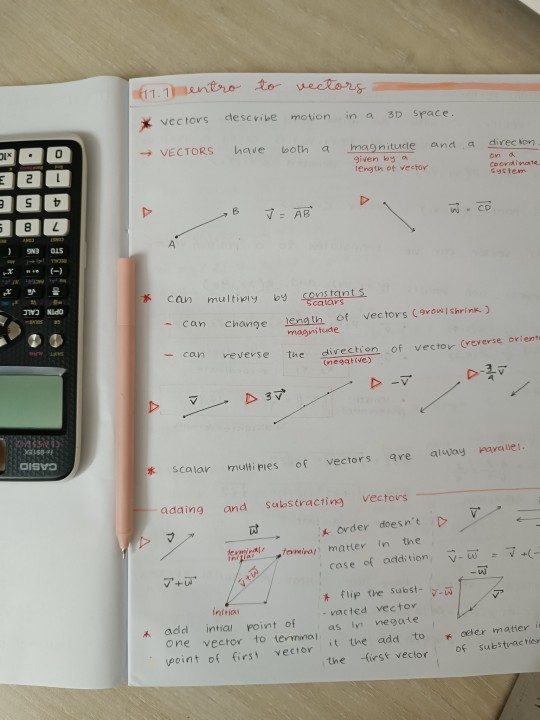 11.1 intro to vectors
* vectors describe motion in a 3D space.
→ VECTORS have both a magnitude and a direction
given by a length of vector
on a coordinate system
A B v = AB
w = CD
* can multiply by constants
scalars
- can change length of vectors (grow/shrink)
magnitude
- can reverse the direction of vector (reverse orient
(negative)
v 3v -v -3/4 v
* scalar multiples of vectors are alway parallel.
adding and substracting vectors
v w
v+w
terminal/ initial
terminal
v+w
initial
* add intial point of
one vector to terminal
point of first vector
* order doesn't
matter in the
case of addition
* flip the subst-
-racted vector
as in negate
it the add to
the first vector
v
v - w = v + (-
-w
v-w v
* oder matter i
of substraction
CASIO
OPTN CALC
STO ENG (
(-)
7 8
4 5
1 2 3
0 . ×10ˣ